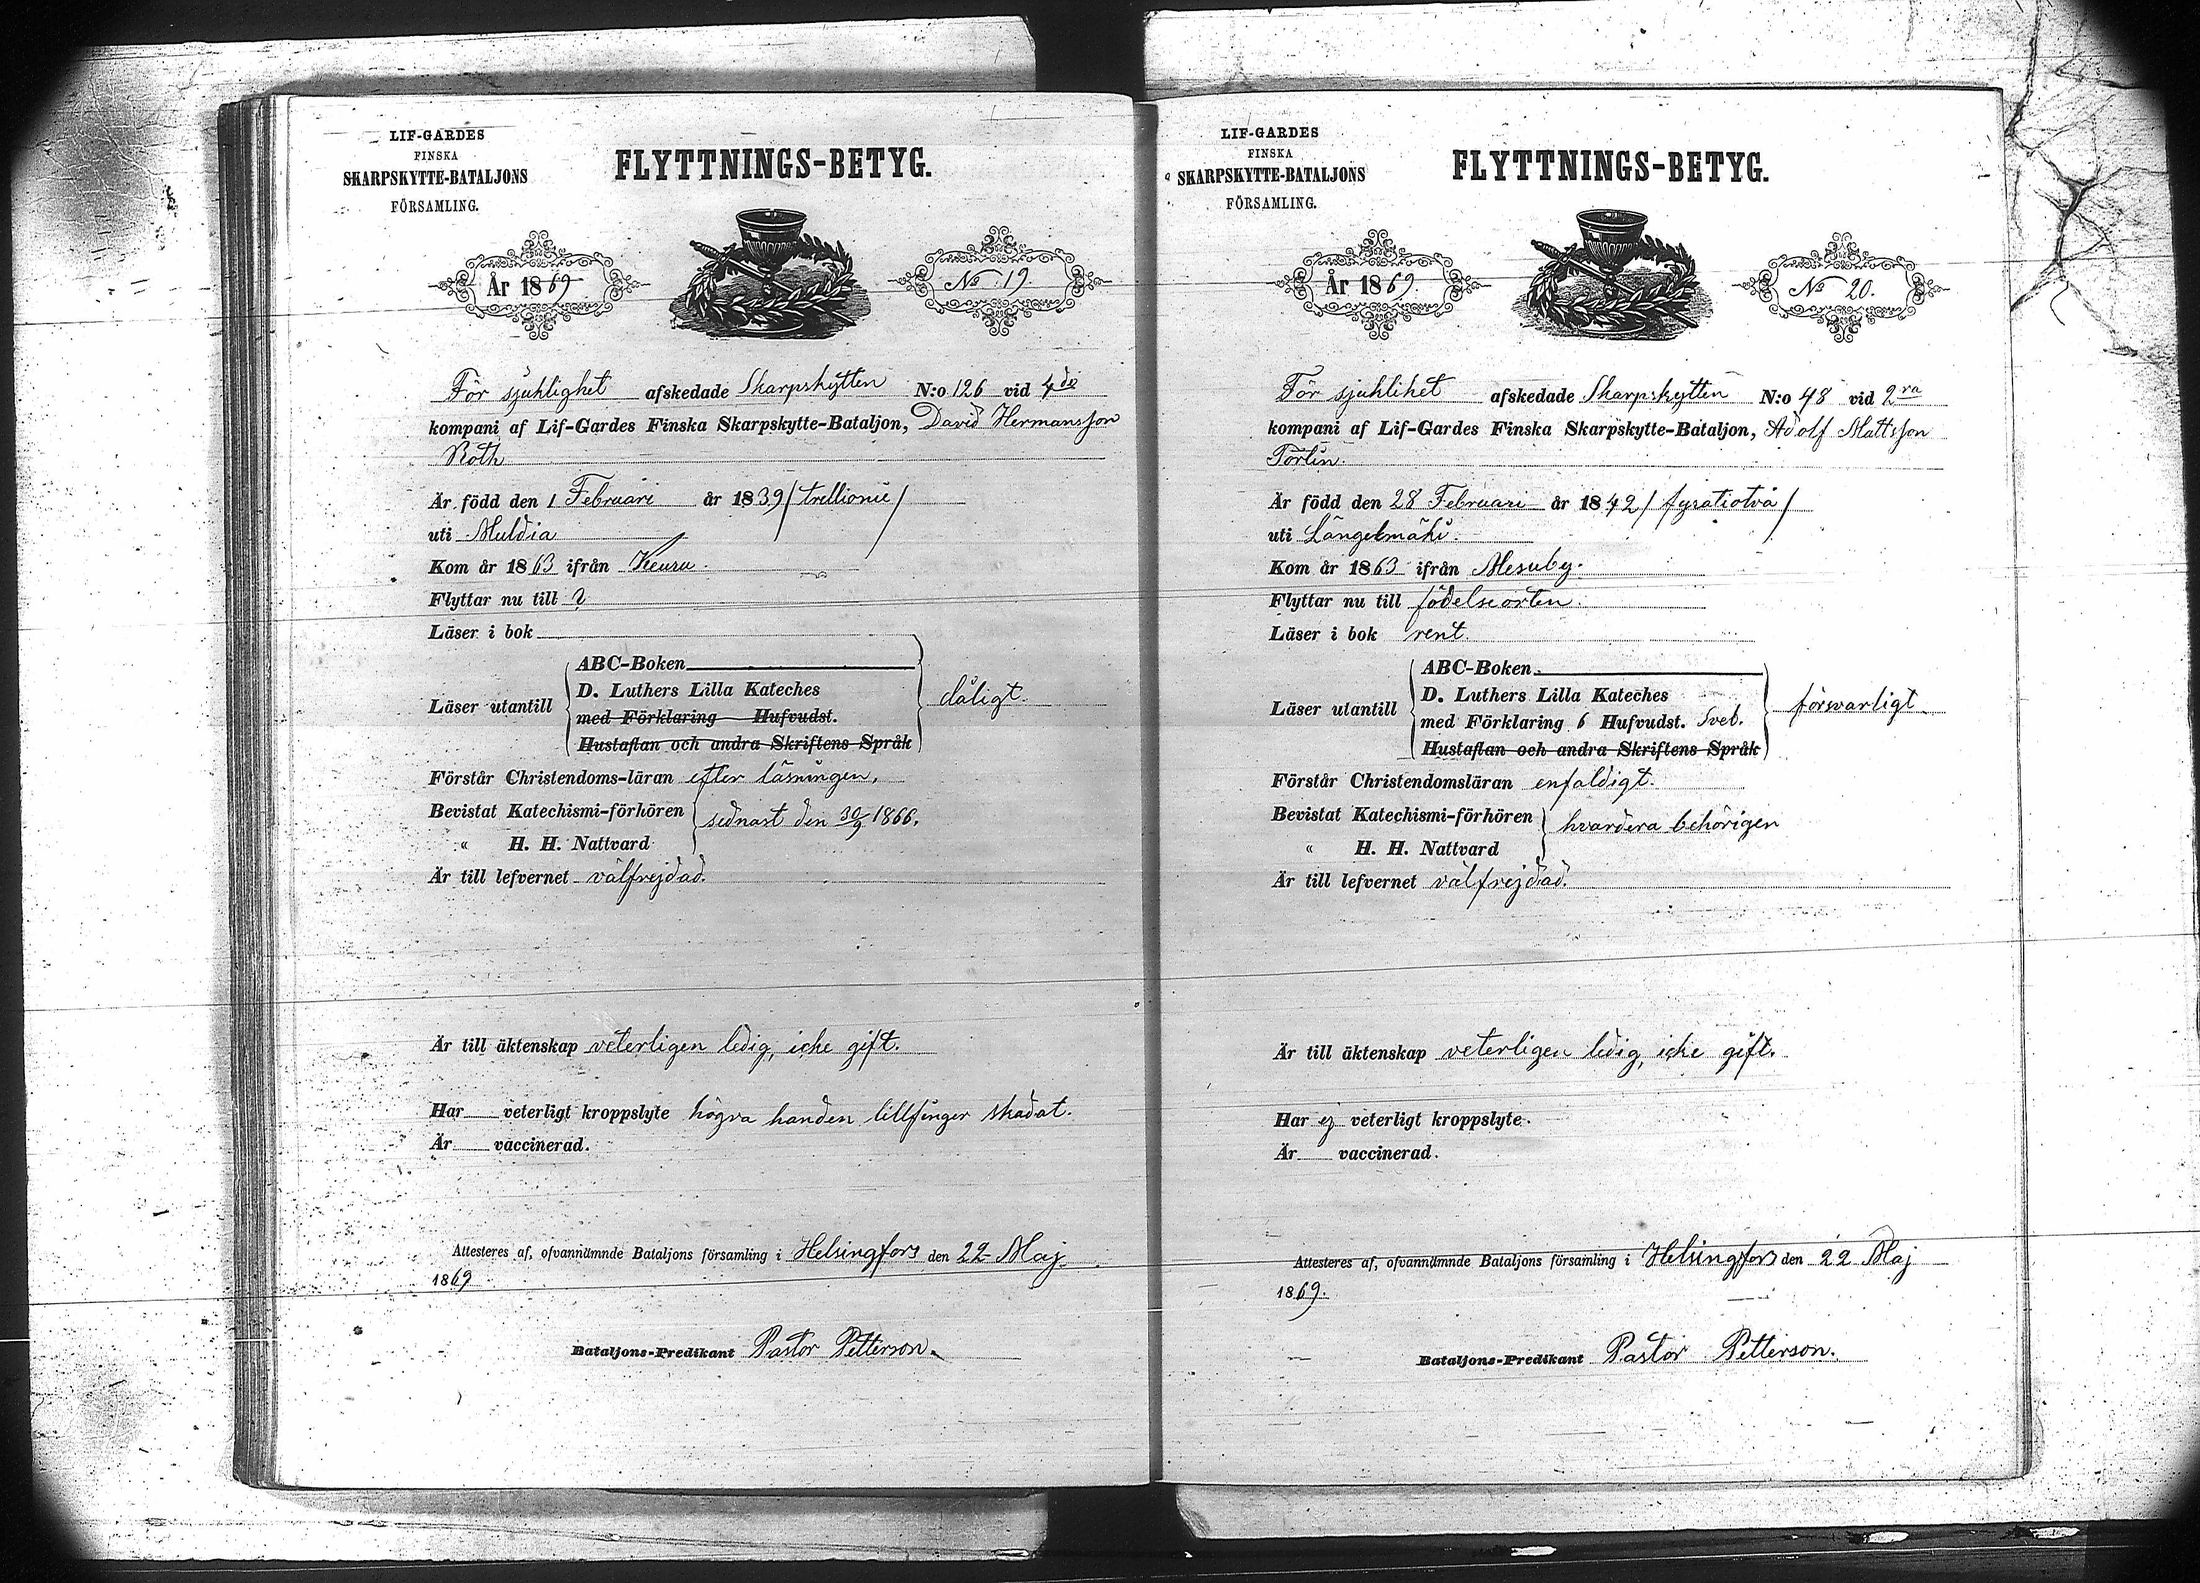 LIF-GARDES
FINSKA
SKARPSKYTTE-BATALJONS
FÖRSAMLING.
FLYTTNINGS-BETYG.
År 1869
No 19
För sjuklighet afskedade Skarpskytten N:o 126 vid 4de
kompani af Lif-Gardes Finska Skarpskytte-Bataljon, David Hermansson
Roth
Är född den 1 Februari år 1839 / trettionie /
uti Muldia
Kom år 1863 ifrån Keuru.
Flyttar nu till ?
Läser i bok
ABC-Boken
Läser utantill D. Luthers Lilla Kateches dåligt.
med Förklaring Hufvudst.
Hustaflan och andra Skriftens Språk
Förstår Christendoms-läran efter läsningen.
Bevistat Katechismi-förhören sednast den 30/9 1866.
" H. H. Nattvard
Är till lefvernet välfrejdad.
Är till äktenskap veterligen ledig, icke gift.
Har veterligt kroppslyte högra handen lillfinger skadat.
Är vaccinerad.
Attesteres af, ofvannämnde Bataljons församling i Helsingfors den 22 Maj
1869
Bataljons-Predikant Pastor Petterson.
LIF-GARDES
FINSKA
SKARPSKYTTE-BATALJONS
FÖRSAMLING.
FLYTTNINGS-BETYG.
År 1869.
No 20.
För sjuklihet afskedade Skarpskytten N:o 48 vid 2ra
kompani af Lif-Gardes Finska Skarpskytte-Bataljon, Adolf Mattsson
Törlin.
Är född den 28 Februari år 1842 / fyratiotvå /
uti Längelmäki.
Kom år 1863 ifrån Mesuby.
Flyttar nu till födelseorten.
Läser i bok rent.
ABC-Boken
Läser utantill D. Luthers Lilla Kateches försvarligt.
med Förklaring 6 Hufvudst. Sveb.
Hustaflan och andra Skriftens Språk
Förstår Christendomsläran enfaldigt.
Bevistat Katechismi-förhören hvardera behörigen
" H. H. Nattvard
Är till lefvernet välfrejdad.
Är till äktenskap veterligen ledig, icke gift.
Har ej veterligt kroppslyte.
Är vaccinerad.
Attesteres af, ofvannämnde Bataljons församling i Helsingfors den 22 Maj
1869.
Bataljons-Predikant Pastor Petterson.